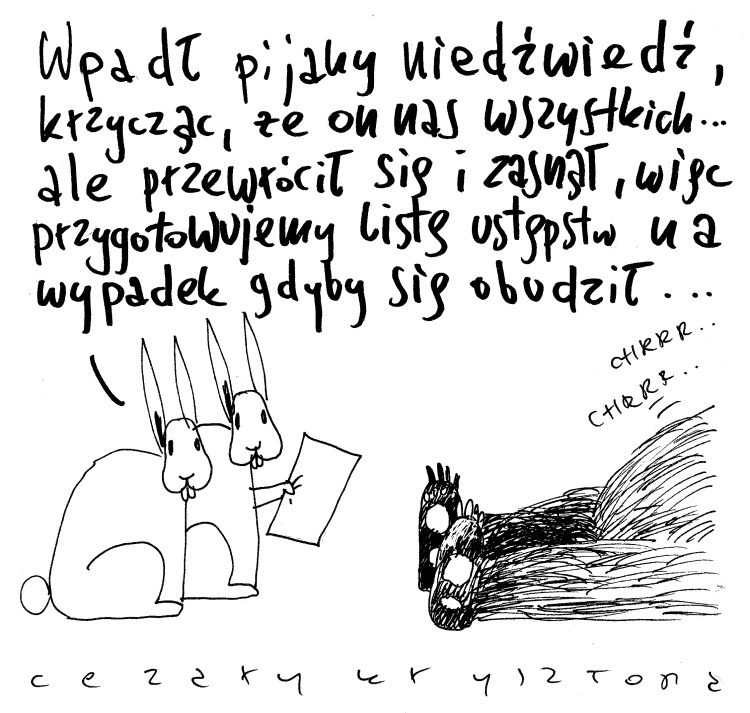 Wpadł pijany niedźwiedź,
krzycząc, że on nas wszystkich...
ale przewrócił się i zasnął, więc
przygotowujemy listę ustępstw na
wypadek gdyby się obudził...
CHRRR..
CHRRR..
cezary krysztopa